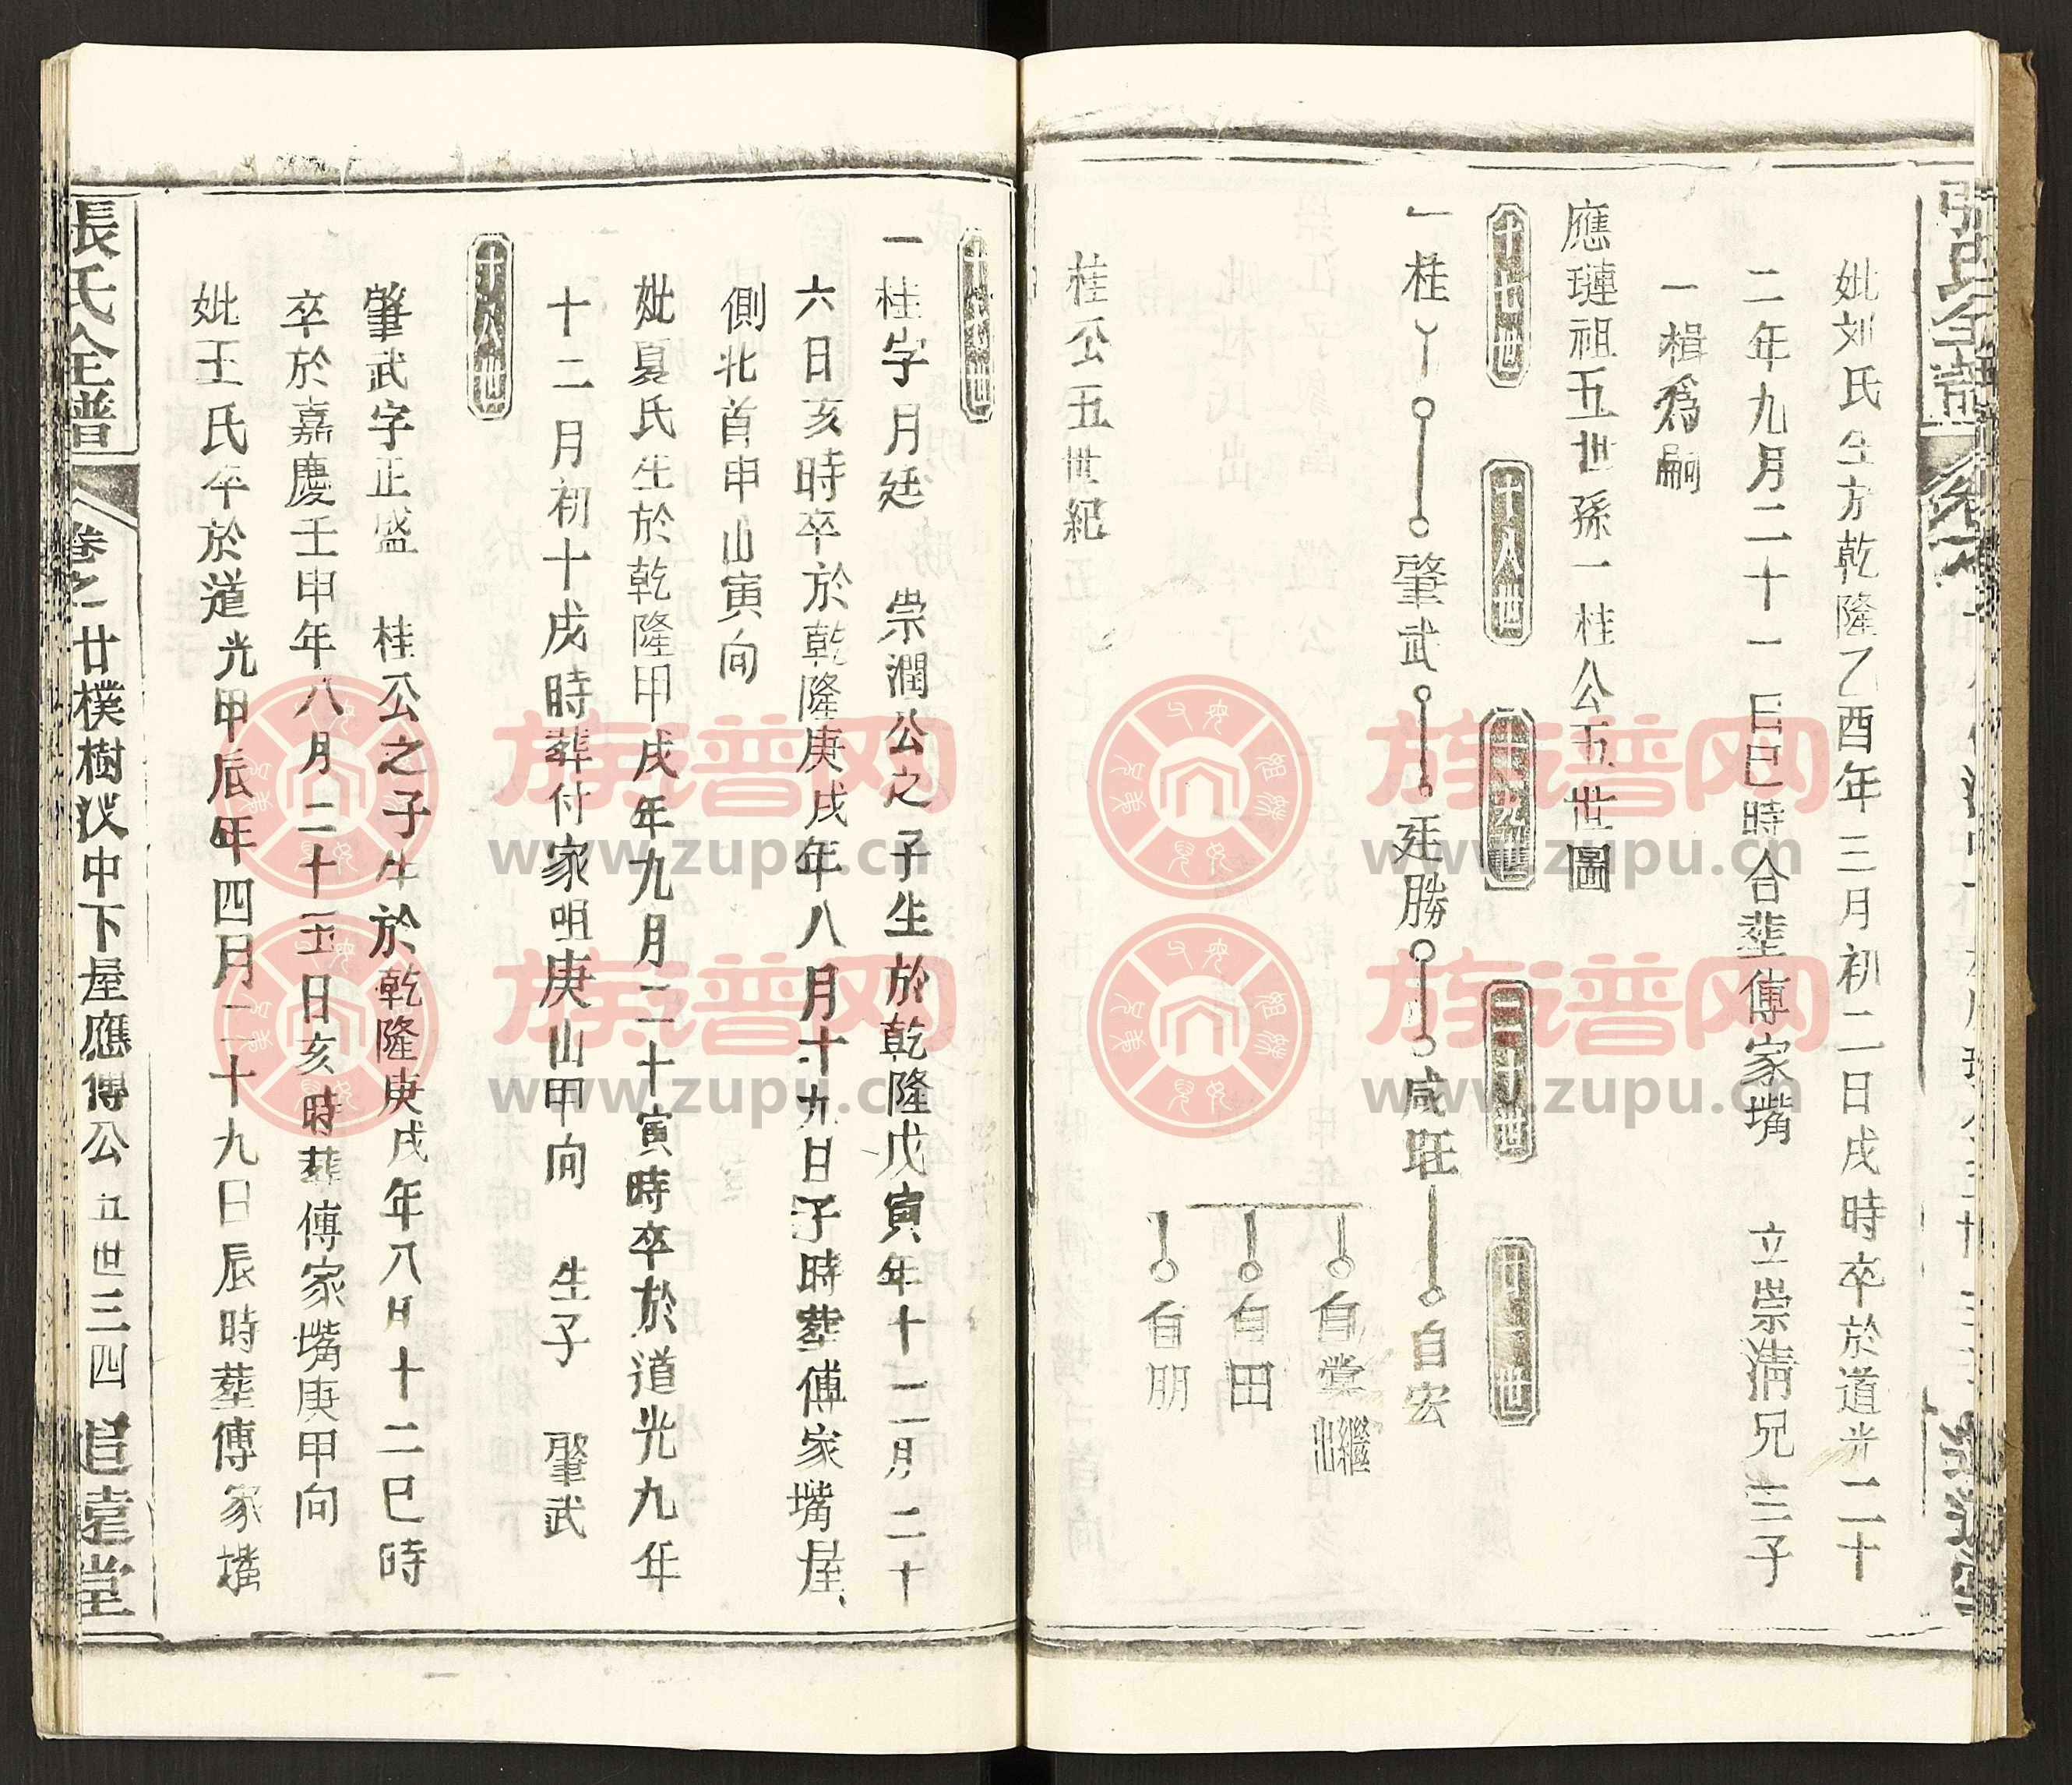 妣刘氏生於乾隆乙酉年三月初二日戌時卒於道光二十
二年九月二十一日巳時合塟傅家嘴　立崇清兄三子
一楫爲嗣
應璉祖五世孫一桂公五世圖
十七世　十八世　十九世　二十世　廿一世
一桂　肇武　廷勝　咸旺　自宏
自棠 出繼
自田
自朋
桂公五世紀
十七世
一桂字月廷　崇潤公之子生於乾隆戊寅年十二月二十
六日亥時卒於乾隆庚戌年八月十九日子時塟傅家嘴屋
側北首申山寅向
妣夏氏生於乾隆甲戌年九月二十寅時卒於道光九年
十二月初十戌時塟付家咀庚山甲向　生子　肇武
十八世
肇武字正盛　桂公之子生於乾隆庚戌年八月十二巳時
卒於嘉慶壬申年八月二十五日亥時塟傅家嘴庚甲向
妣王氏卒於道光甲辰年四月二十九日辰時塟傅家嘴
張氏全譜　卷之一廿樸樹汊中下屋應傳公　五世　三四　追遠堂
族谱网
www.zupu.cn
族谱网
www.zupu.cn
族谱网
www.zupu.cn
族谱网
www.zupu.cn